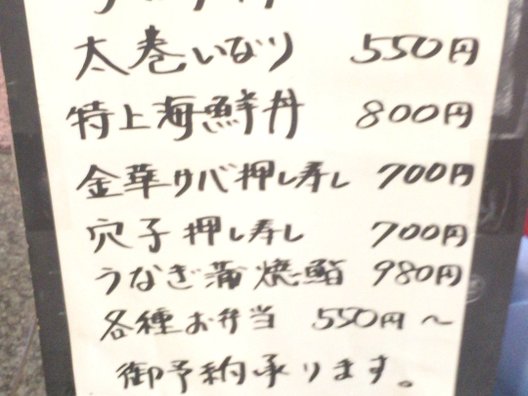 太巻いなり 550円
特上海鮮丼 800円
金華サバ押し寿し 700円
穴子押し寿し 700円
うなぎ蒲焼鮨 980円
各種お弁当 550円〜
御予約承ります。